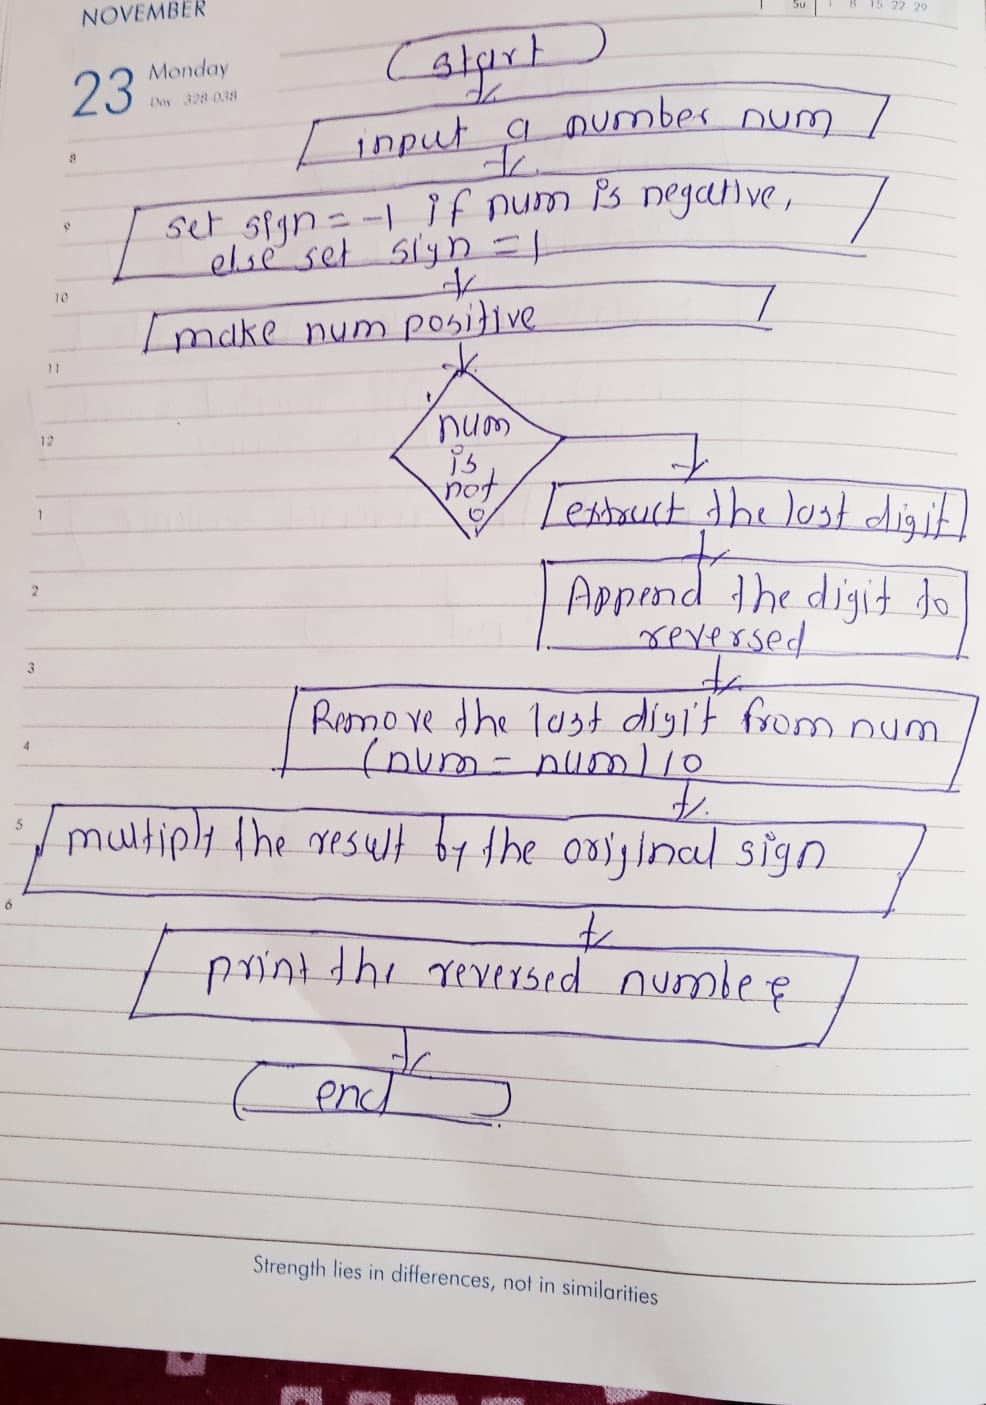 NOVEMBER
Su 1 8 15 22 29
23 Monday
Day 328-038
start
8
input a number num
9
set sign = -1 if num is negative,
else set sign = 1
10
make num positive
11
12
num
is
not
0
1
extract the last digit
2
Append the digit to
reversed
3
Remove the last digit from num
4
(num = num) 10
5
multiply the result by the original sign
6
print the reversed number
end
Strength lies in differences, not in similarities